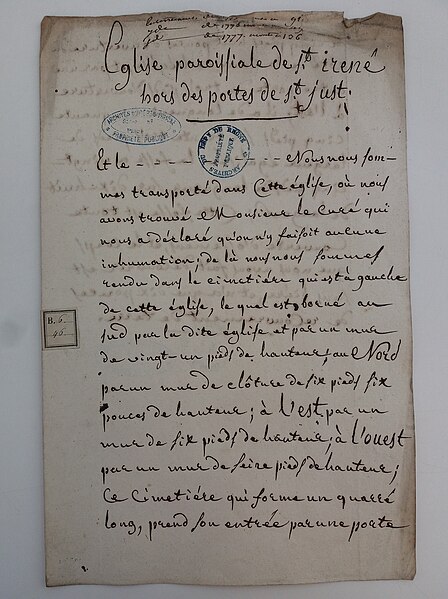 de 1776
de 1777. 126
Eglise paroissiale de St. irené
hors des portes de St. just.
ARCHIVES
PROPRIÉTÉ PUBLIQUE
ARCHIVES DU DEPT DU RHONE
PROPRIÉTÉ PUBLIQUE
Et le - - - - - - - - - Nous nous som-
mes transporté dans Cette église, où nous
avons trouvé Monsieur le Curé qui
nous a déclaré qu'on n'y faisoit aucune
inhumation; de là nous nous sommes
rendu dans le cimetiére qui est à gauche
de cette église, le quel est borné au
sud par la dite église et par un mur
de vingt-un pieds de hauteur; au Nord
par un mur de clôture de six pieds six
pouces de hauteur; à l'est par un
mur de six pieds de hauteur; à l'ouest
par un mur de seize pieds de hauteur;
Ce Cimetiére qui forme un quarré
long, prend son entrée par une porte
B. 6.
46.